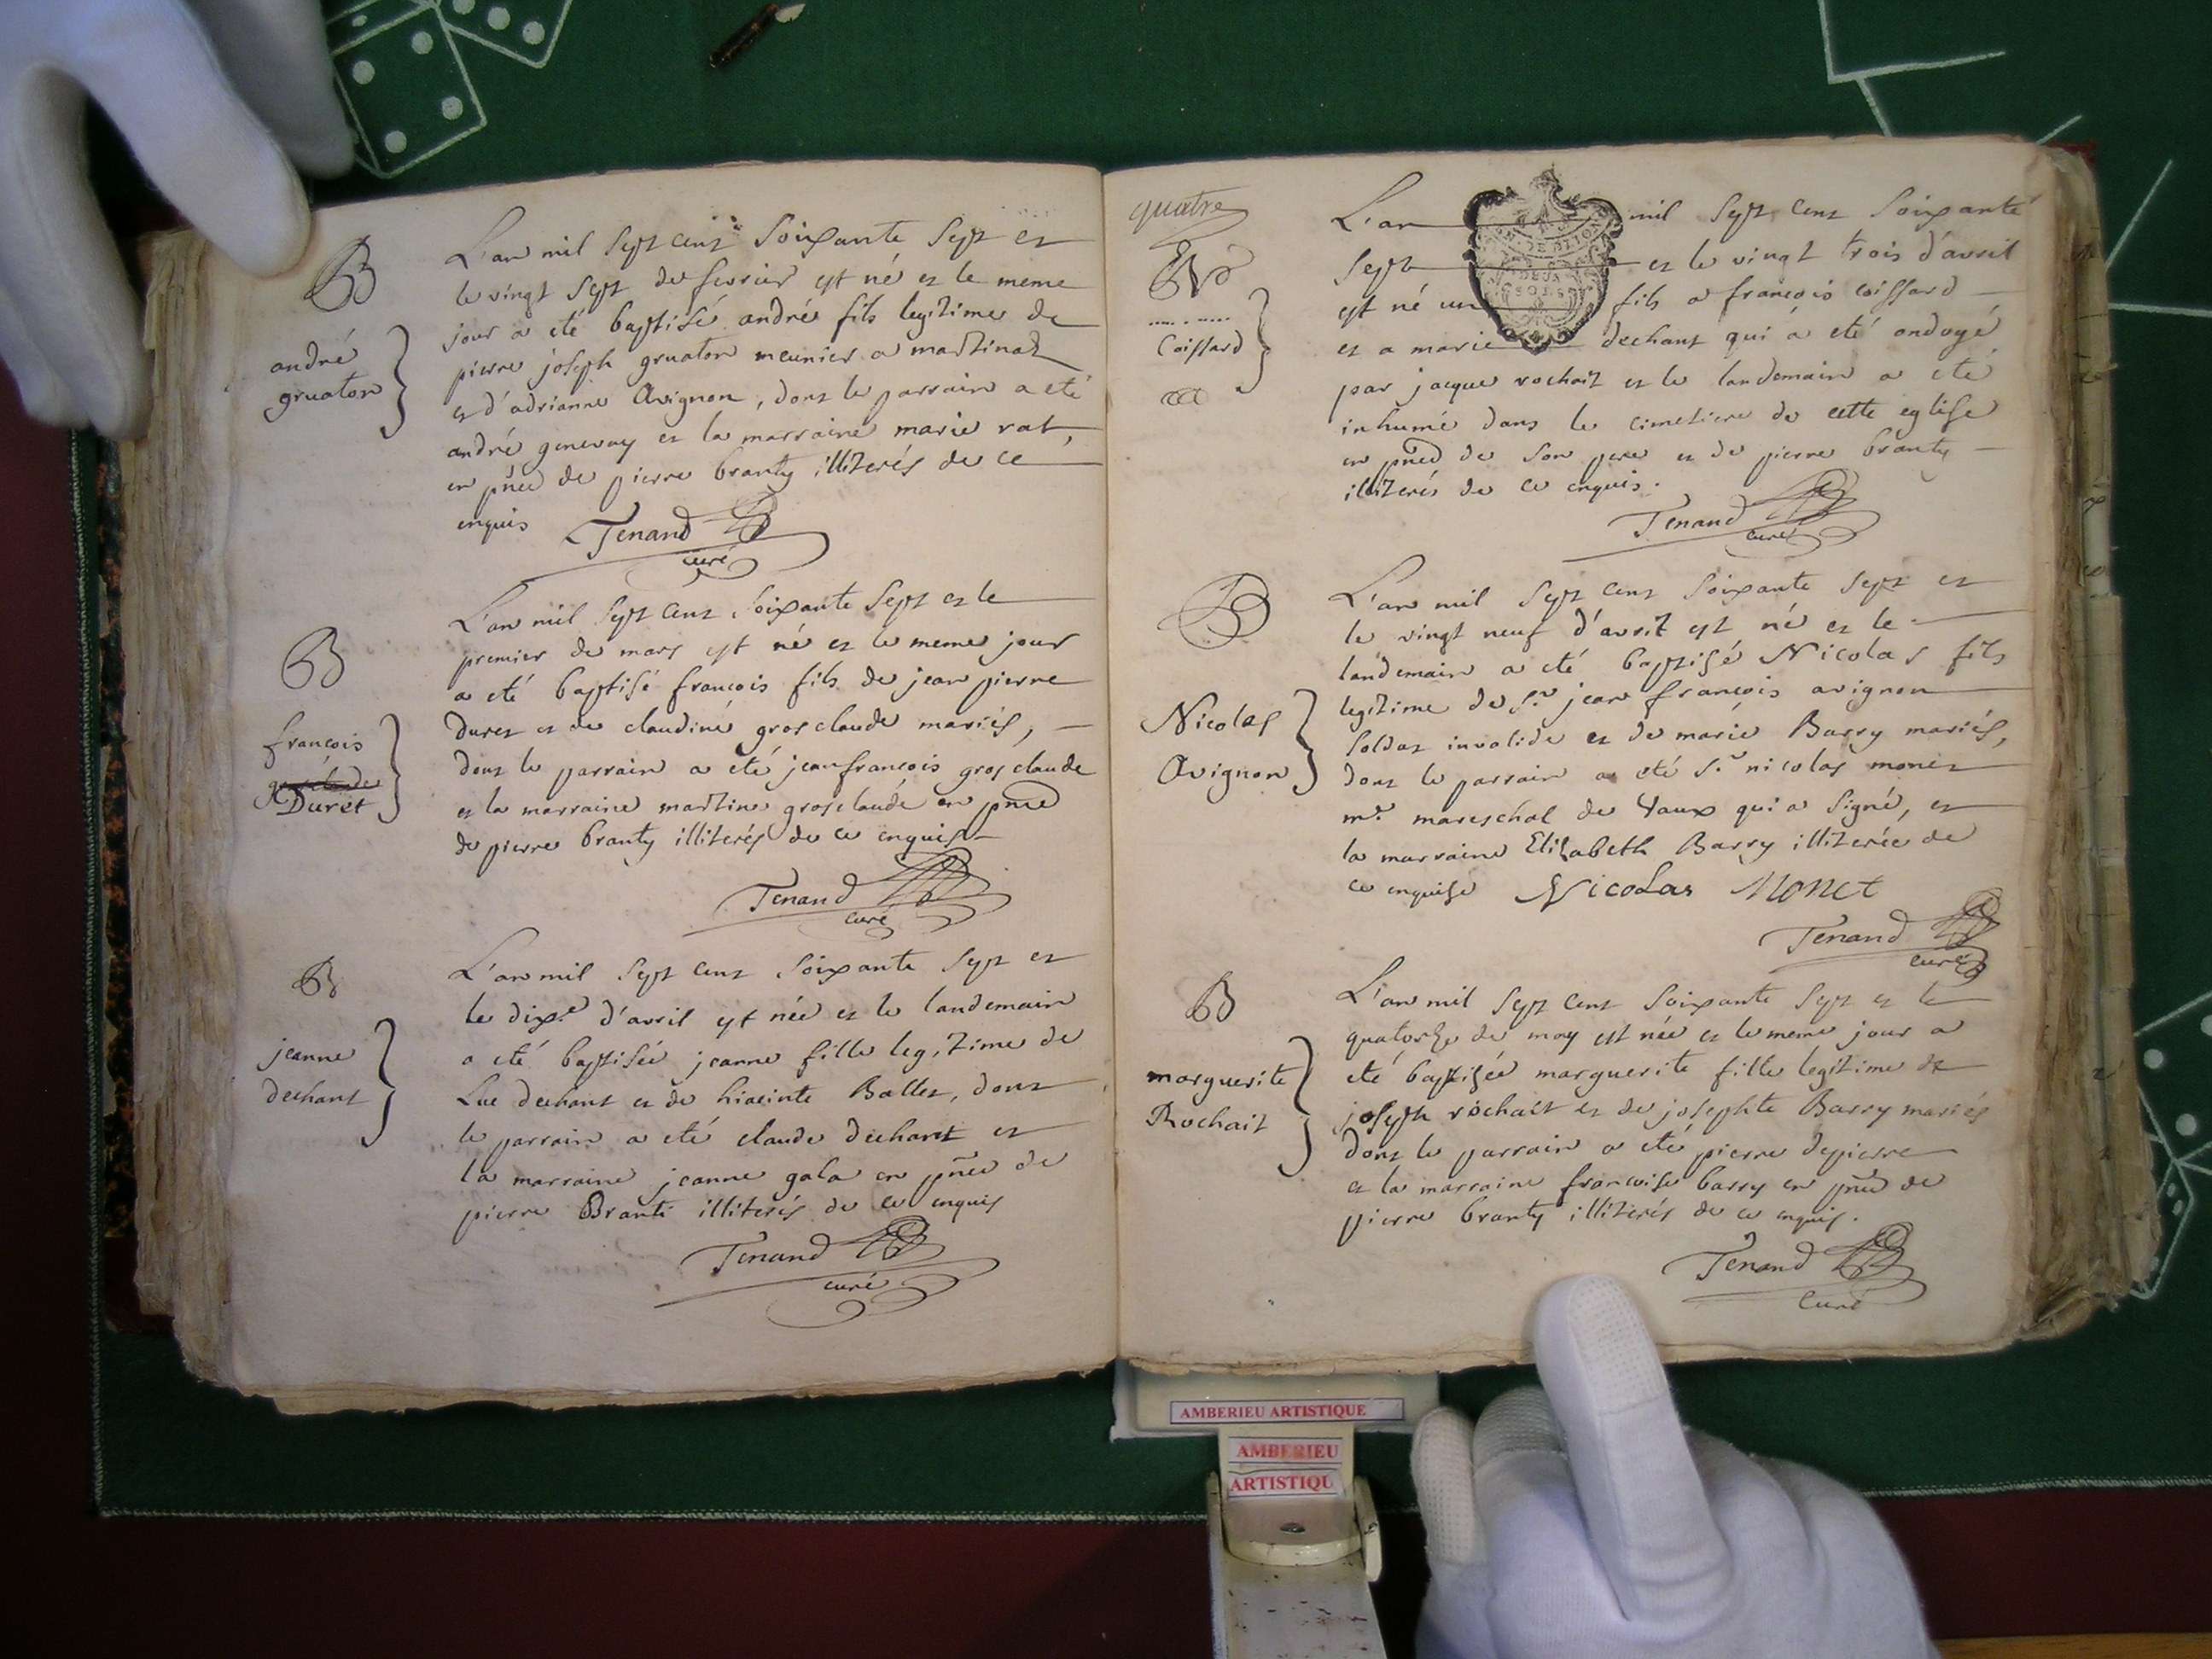 B
andré
gruaton
L'an mil sept cent soixante sept et
le vingt sept de fevrier est né et le meme
jour a eté baptisé andré fils legitime de
pierre joseph gruaton meunier a martinaz
et d'adrianne Avignon, dont le parrain a eté
andré genevay et la marraine marie rat,
en pñce de pierre branty illiterés de ce
enquis Tenand
curé
B
françois
Duret
L'an mil sept cent soixante sept et le
premier de mars est né et le meme jour
a eté baptisé francois fils de jean pierre
Duret et de claudine grosclaude mariés,
dont le parrain a eté jeanfrancois grosclaude
et la marraine martine grosclaude en pñce
de pierre branty illiterés de ce enquis
Tenand
curé
B
jeanne
dechant
L'an mil sept cent soixante sept et
le dix.e d'avril est née et le landemain
a eté baptisée jeanne fille legitime de
Luc dechant et de hiacinte Ballet, dont
le parrain a eté claude dechant et
la marraine jeanne gala en pñce de
pierre Branti illiterés de ce enquis
Tenand
curé
quatre
Coissard
L'an mil sept cent soixante
sept et le vingt trois d'avril
est né un fils a françois coissard
et a marie dechant qui a eté ondoyé
par jacque rochait et le landemain a eté
inhumé dans le cimetiere de cette eglise
en pñce de son pere et de pierre branty
illiterés de ce enquis.
Tenand
curé
B
Nicolas
Avignon
L'an mil sept cent soixante sept et
le vingt neuf d'avril est né et le
landemain a eté baptisé Nicolas fils
legitime de S.r jean françois avignon
soldat invalide et de marie Barry mariés,
dont le parrain a eté S.r nicolas monet
m.e mareschal de Vaux qui a signé, et
la marraine Elisabeth Barry illiterée de
ce enquise Nicolas Monet
Tenand
curé
B
marguerite
Rochait
L'an mil sept cent soixante sept et le
quatorze de may est née et le meme jour a
eté baptisée marguerite fille legitime de
joseph rochait et de josephte Barry mariés
dont le parrain a eté pierre depierre
et la marraine francoise barry en pñce de
pierre branty illiterés de ce enquis.
Tenand
Curé
AMBERIEU ARTISTIQUE
AMBERIEU
ARTISTIQU